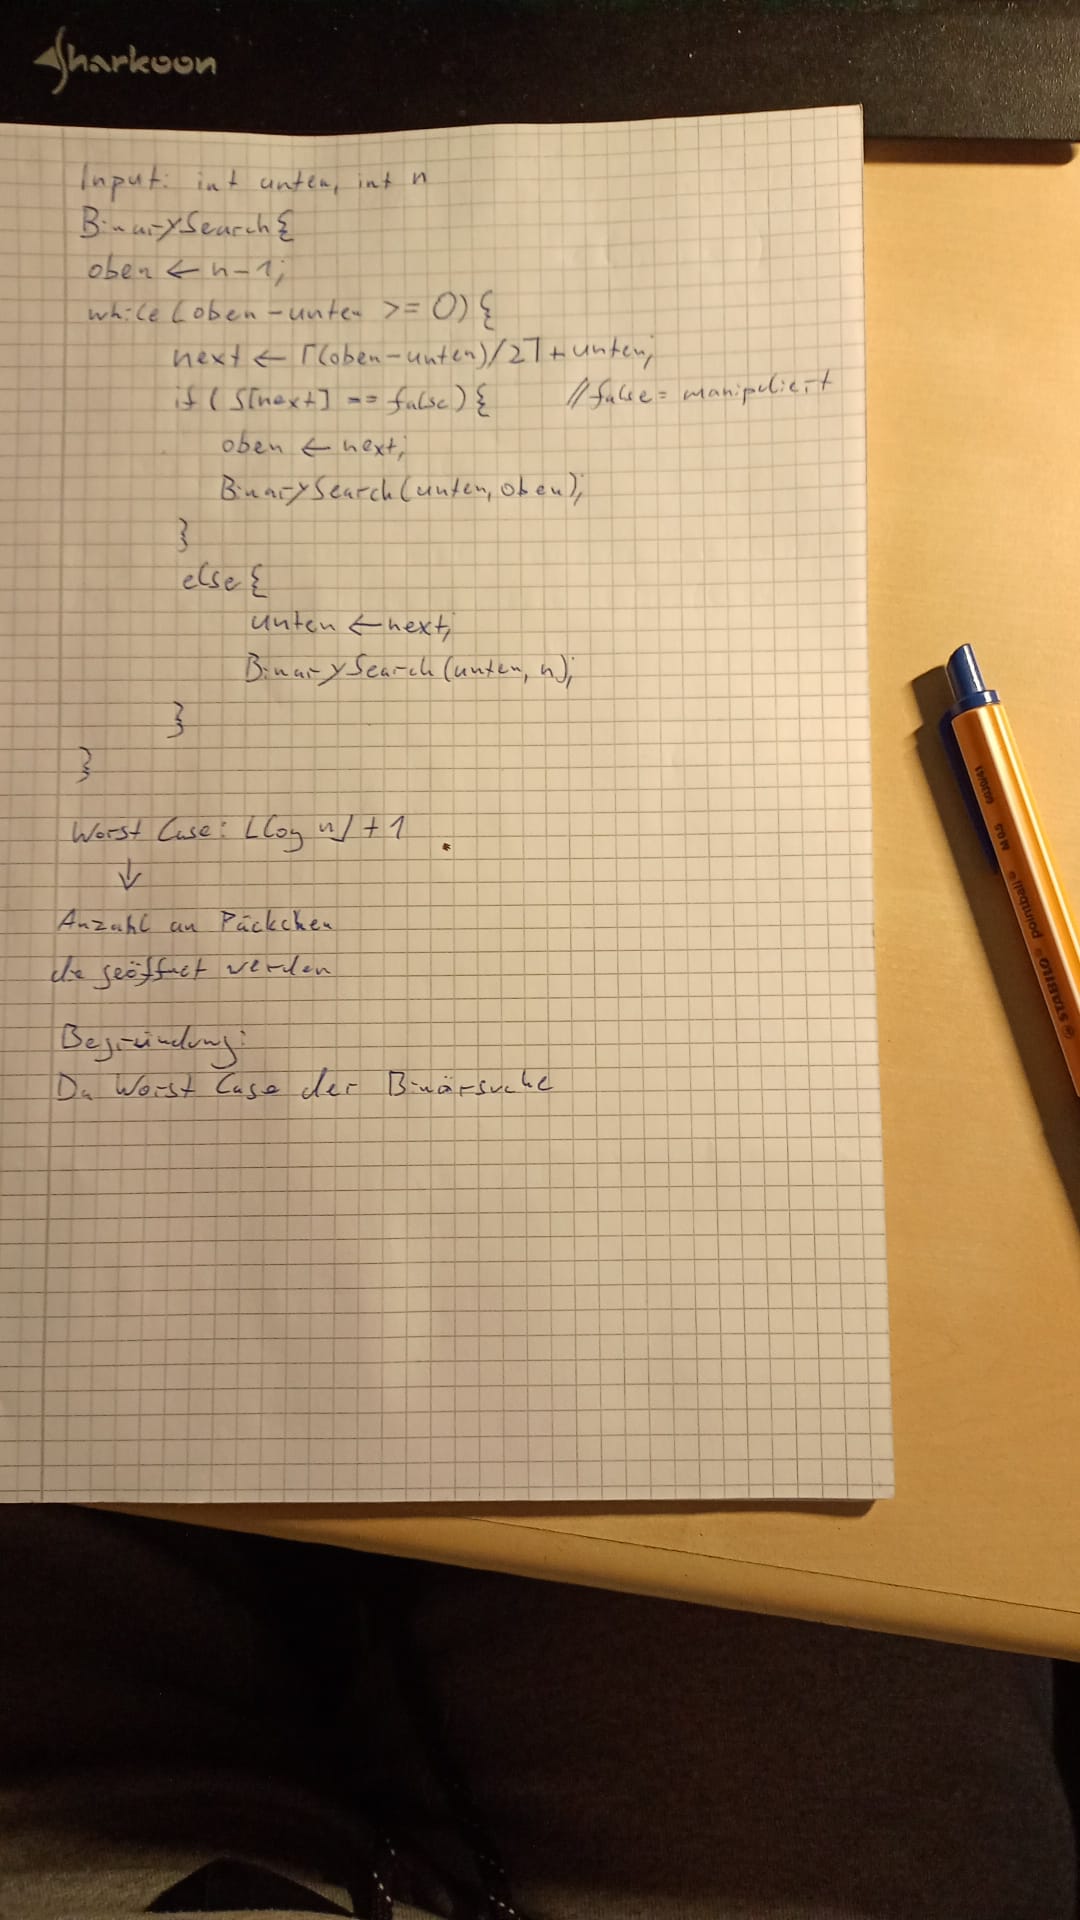 Sharkoon
Input: int unten, int n
BinarySearch{
oben ← n-1;
while (oben-unten >= 0) {
next ← ⌈(oben-unten)/2⌉ + unten;
if ( S[next] == false) { //false = manipuliert
oben ← next;
BinarySearch(unten, oben);
}
else {
unten ← next;
BinarySearch (unten, n);
}
}
Worst Case: ⌊log n⌋ + 1
↓
Anzahl an Päckchen
die geöffnet werden
Begründung:
Da Worst Case der Binärsuche
STABILO point ball M 0.5 6030/41